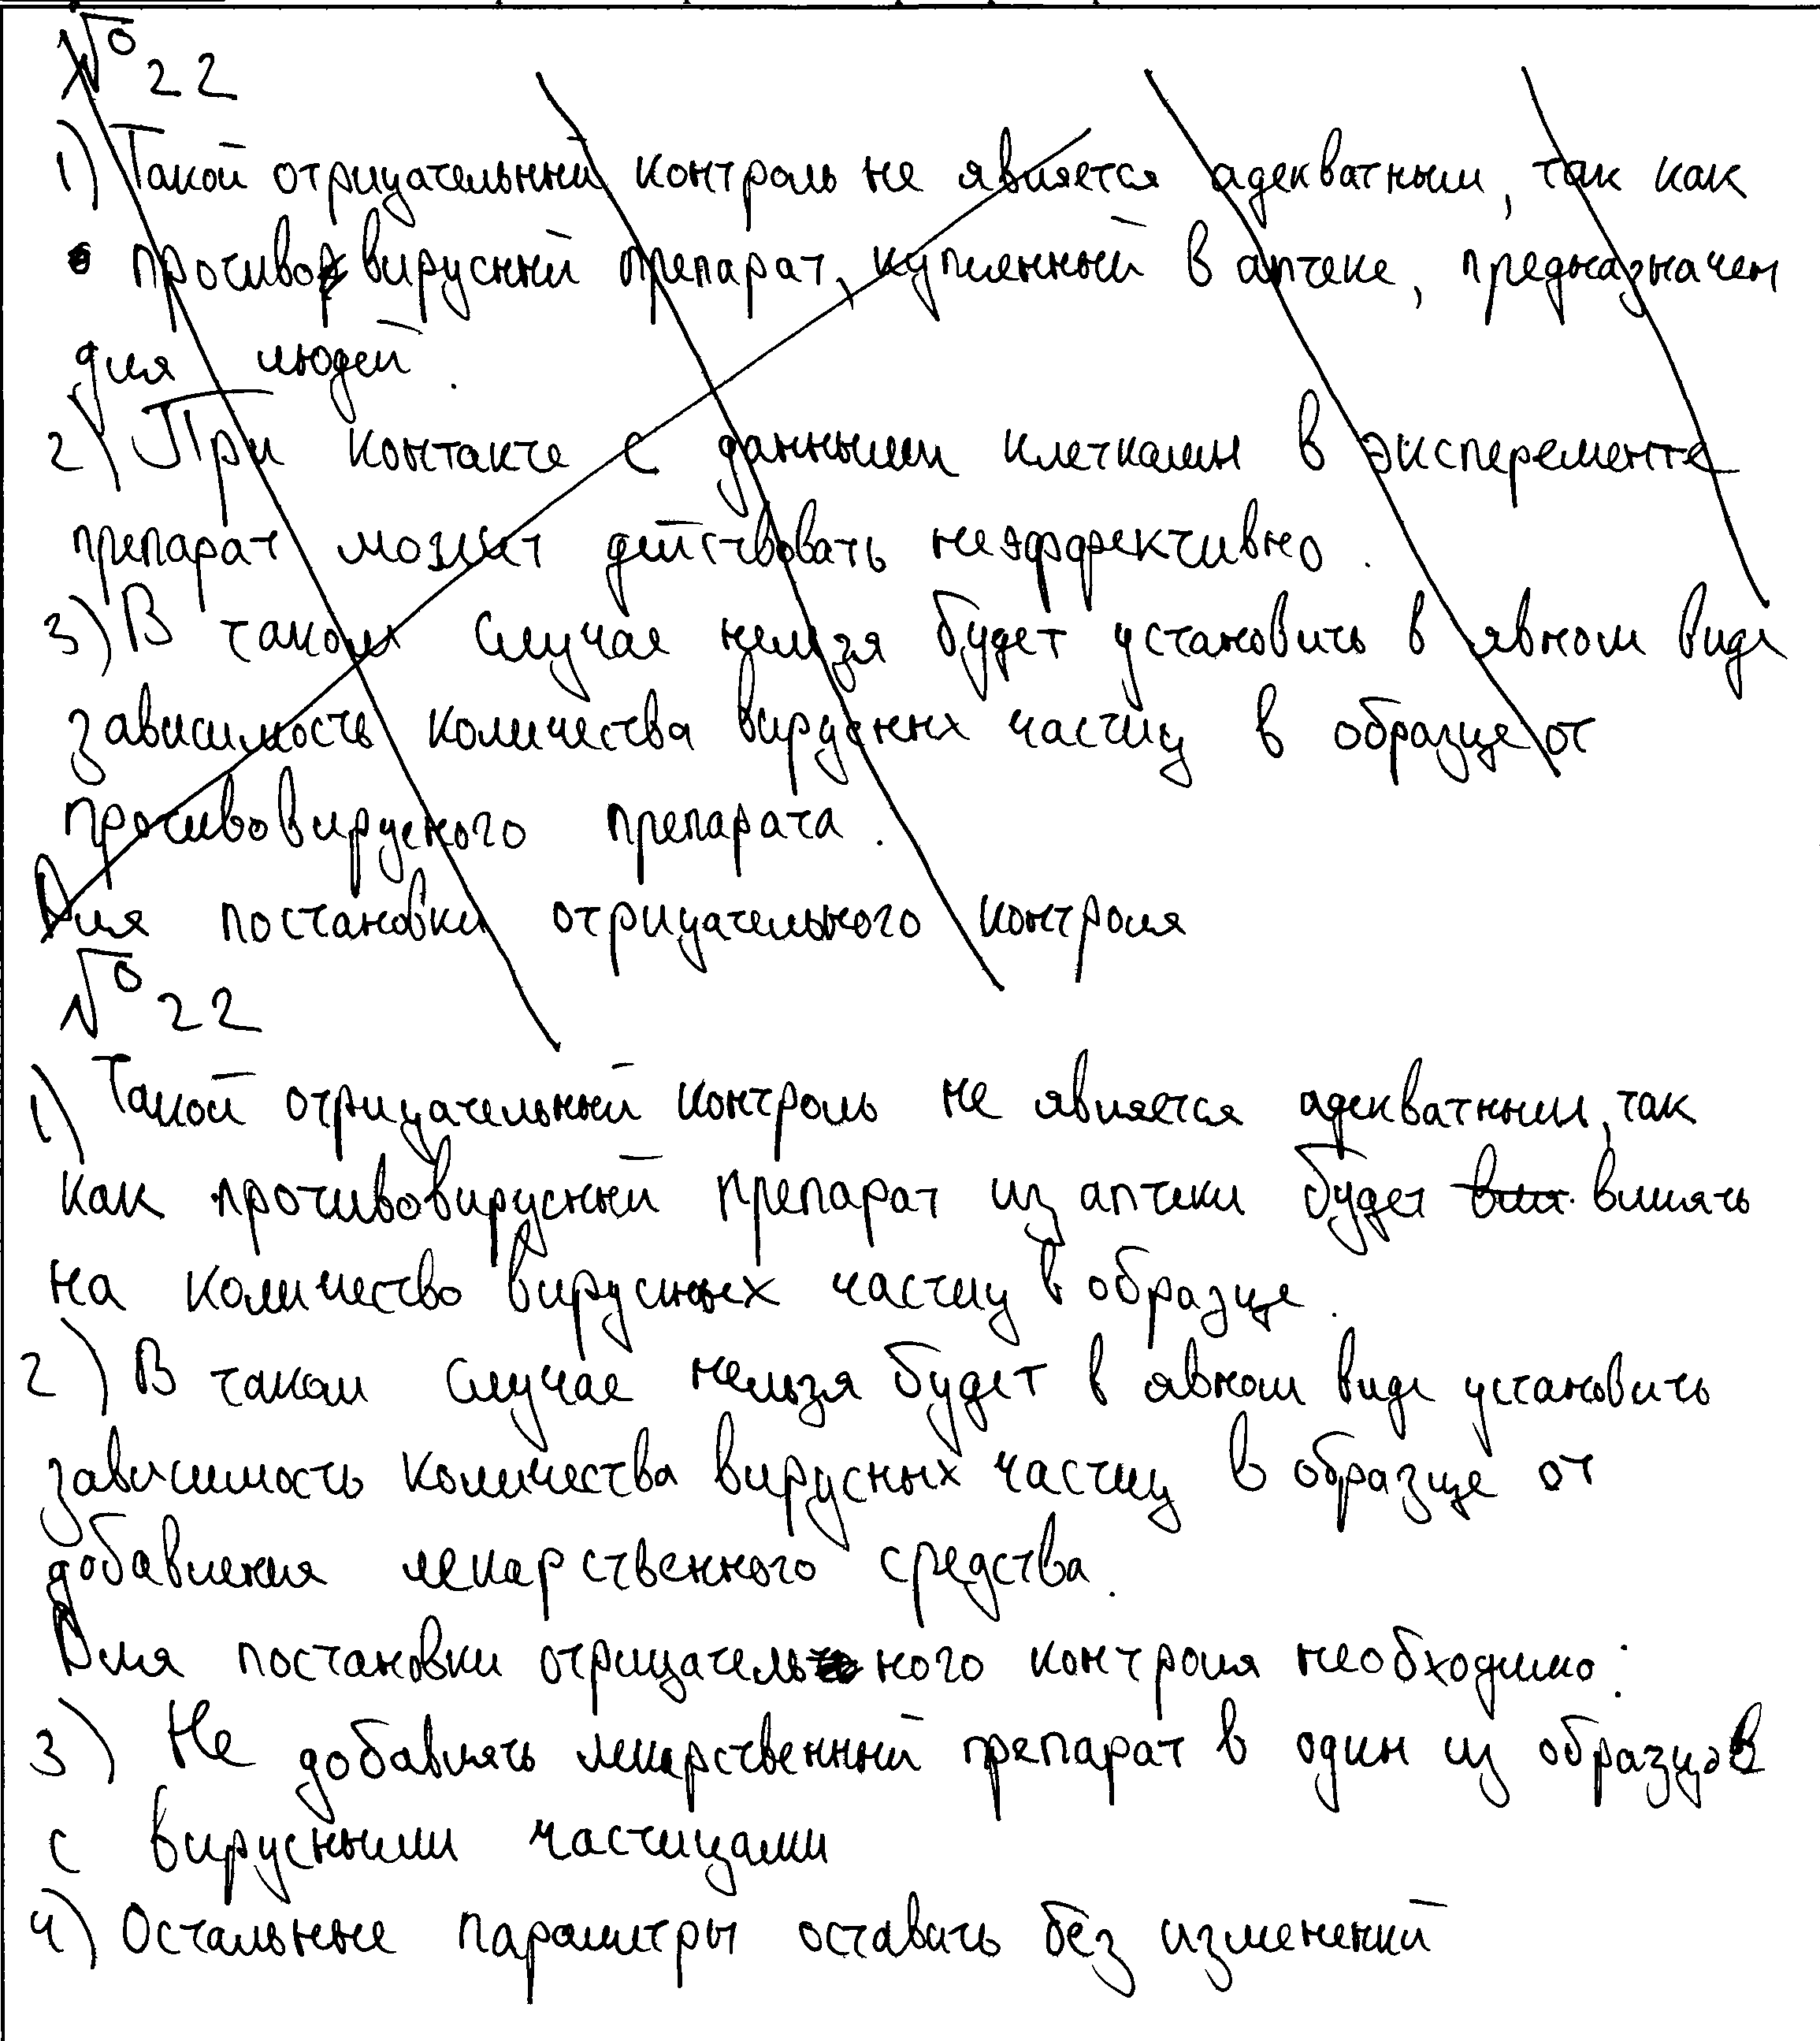 №22
1) Такой отрицательный контроль не является адекватным, так как
противовирусный препарат, купленный в аптеке, предназначен
для людей.
2) При контакте с данными клетками в эксперементе
препарат может действовать неэффективно.
3) В таком случае нельзя будет установить в явном виде
зависимость количества вирусных частиц в образце от
противовирусного препарата.
Для постановки отрицательного контроля
№22
1) Такой отрицательный контроль не является адекватным, так
как противовирусный препарат из аптеки будет влиять
на количество вирусных частиц в образце.
2) В таком случае нельзя будет в явном виде установить
зависимость количества вирусных частиц в образце от
добавления лекарственного средства.
Для постановки отрицательного контроля необходимо:
3) Не добавлять лекарственный препарат в один из образцов
с вирусными частицами
4) Остальные параметры оставить без изменений